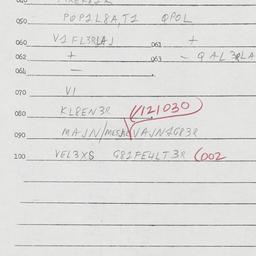 050 POP1L8A,T1 QPOL
060 V1FL3RLAJ 061 +
062 + 063 - QAL3RLA
064 -
070 V1
080 KL8EN3R 1/121030
090 MAJN/
100 VEL3XS G81FE4LT3R (002